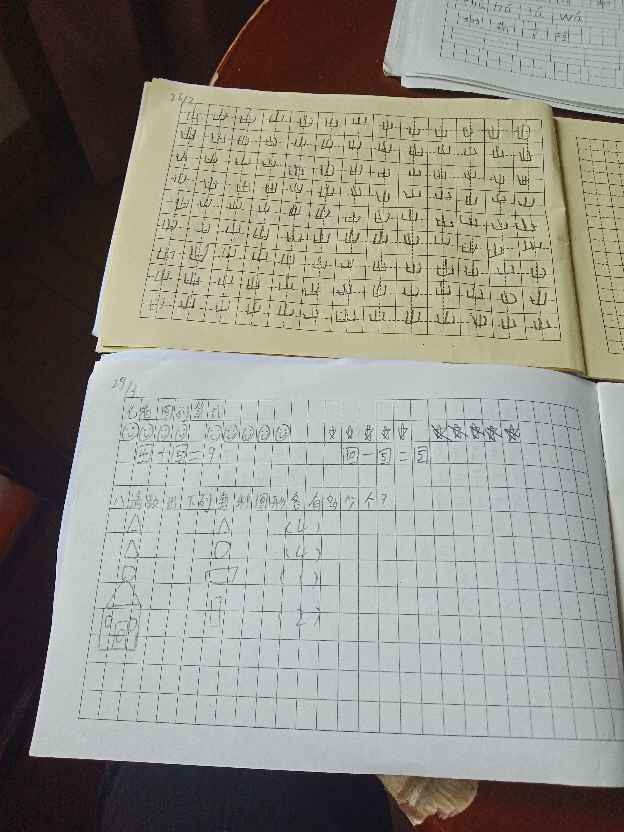 wá
山山山山山山山山山山山山山
山山山山山山山山山山山山山
山山山山山山山山山山山山山
山山山山山山山山山山山山山
山山山山山山山山山山山山山
山山山山山山山山山山山山山
山山山山山山山山山山山山山
山山山山山山山山山山山山山
山山山山山山山山山山山山山
七看图列算式
4+5=9 10-5=5
八请数出下列 图形各有多少个?
(4)
(4)
(1)
(2)